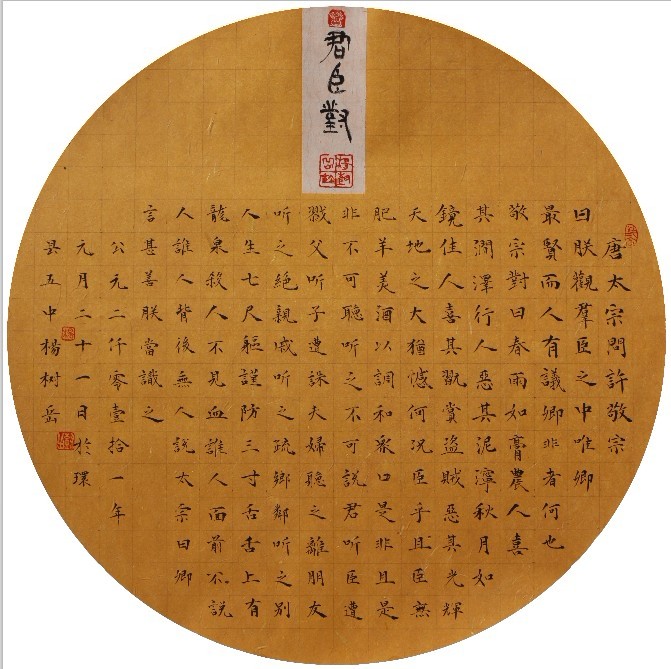 君臣對
唐太宗問許敬宗
曰朕觀羣臣之中唯卿
最賢而人有議卿非者何也
敬宗對曰春雨如膏農人喜
其潤澤行人惡其泥濘秋月如
鏡佳人喜其翫賞盗賊惡其光輝
天地之大猶憾何况臣乎且臣無
肥羊美酒以調和衆口是非且是
非不可聽听之不可說君听臣遭
戮父听子遭誅夫婦聽之離朋友
听之絕親戚听之疏鄉鄰听之别
人生七尺軀謹防三寸舌舌上有
龍泉殺人不見血誰人面前不說
人誰人背後無人說太宗曰卿
言甚善朕當識之
公元二仟零壹拾一年
元月二十一日於環
县五中楊树岳